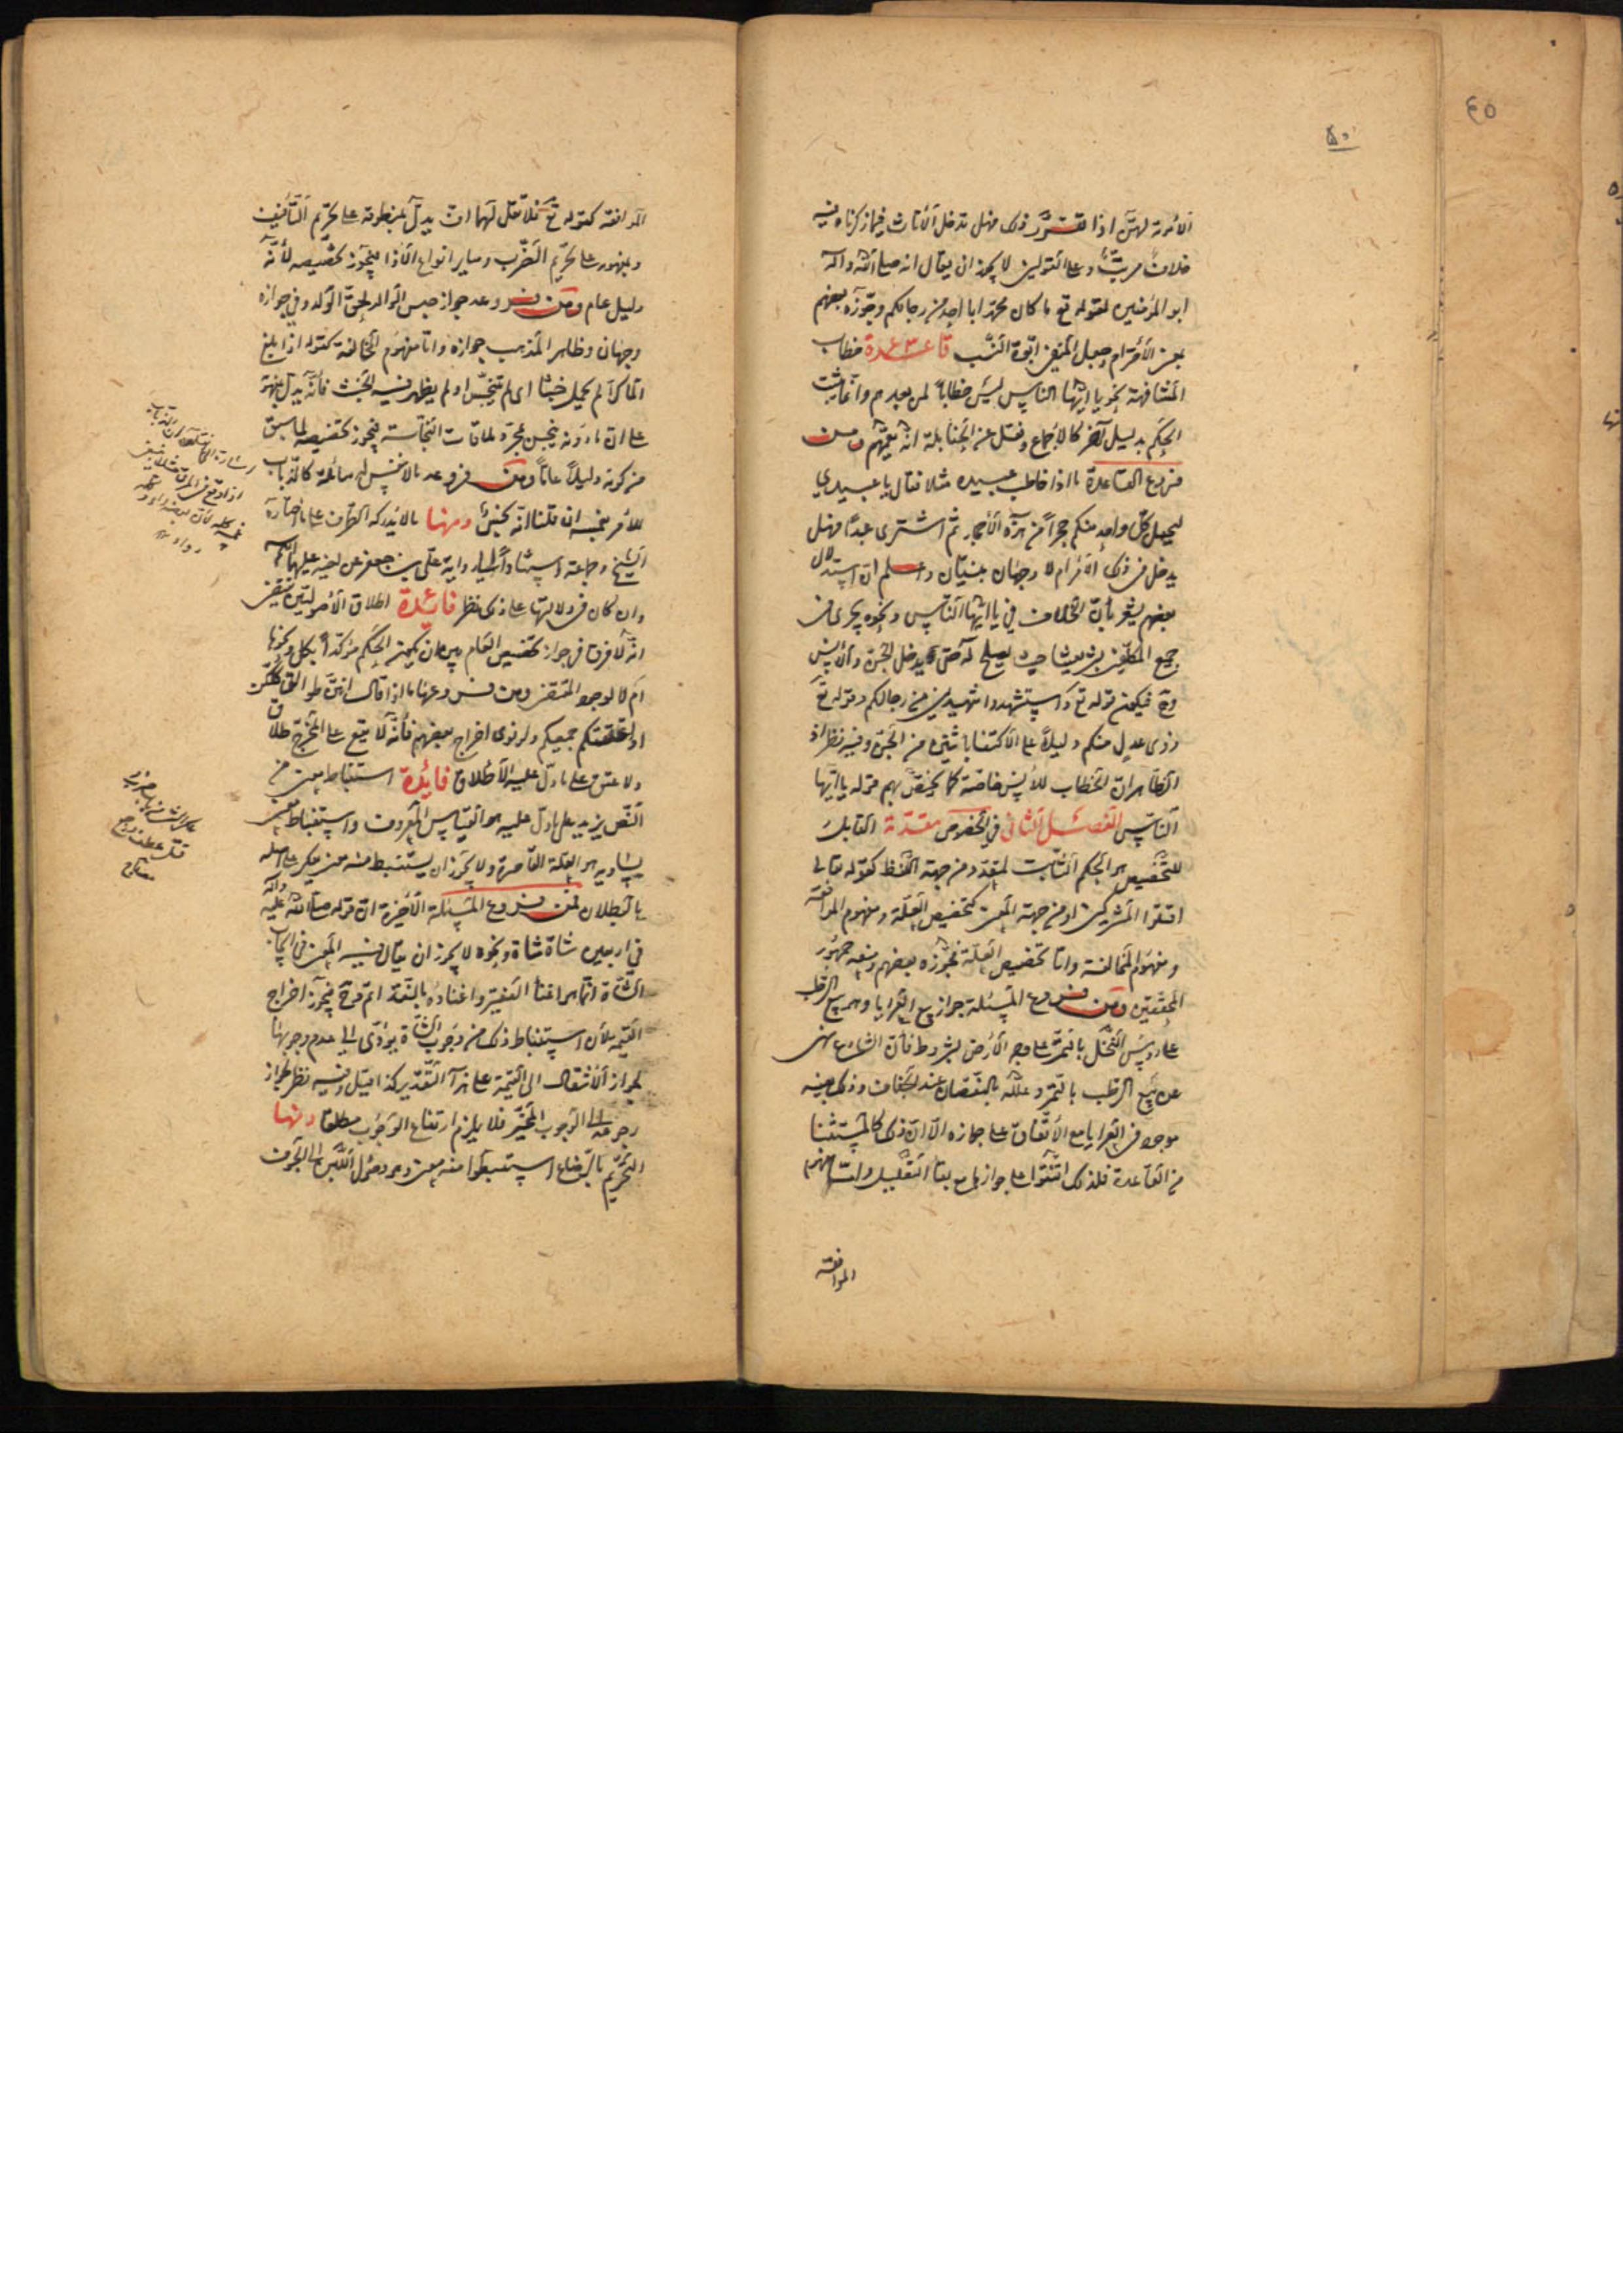 ٤٥
٥٠
الأمومة لهن اذا تقرر ذلك فهل تدخل الأناث فيما ذكرناه فيه
خلاف مرتب وعلى القولين لا يجوز ان يقال انه صلى الله واله
ابو المؤمنين لقوله تع ما كان محمد ابا احد من رجالكم وجوزه بعضهم
بمعنى الأحترام وجعل المنفى ابوة النسب قاعدة خطاب
المشافهة نحو يا ايها الناس ليس خطاباً لمن بعدهم وانما يثبت
الحكم بدليل آخر كالاجماع ونقل عن الحنابلة انه يعمهم ومن
فروع القاعدة ما اذا خاطب عبيده مثلا فقال يا عبيدي
ليحمل كل واحد منكم حجراً من هذه الأحجار ثم اشترى عبداً فهل
يدخل في ذلك الأمر ام لا وجهان مبنيان واعلم ان استدلال
بعضهم يشعر بأن الخلاف في يا ايها الناس ونحوه يجرى فى
جميع المكلفين حيث يصلح له حتى يدخل الجن والأنس
وح فيكون قوله تع واستشهدوا شهيدين من رجالكم وقوله تع
ذوى عدل منكم دليلاً على الأكتفا باثنين من الجن وفيه نظر اذ
الظاهر ان الخطاب للأنس خاصة كما يختص بهم قوله يا ايها
الناس الفصل الثانى في الخصوص مقدمة القابل
للتخصيص هو الحكم الثابت لمتعدد من جهة اللفظ كقوله تعالى
اقتلوا المشركين او من جهة المعنى كتخصيص العلة ومفهوم الموافقة
ومفهوم المخالفة واما تخصيص العلة فجوزه بعضهم ومنعه جمهور
المحققين ومن فروع المسئلة جواز بيع العرايا وهو بيع الرطب
على رؤس النخل بالتمر على وجه الأرض بشروط فان الشارع نهى
عن بيع الرطب بالتمر وعلله بالنقصان عند الجفاف وذلك بعينه
موجود في العرايا مع الأتفاق على جوازه الا ان ذلك كالمستثنا
من القاعدة فلذلك اتفقوا على جوازها مع بقا التعليل واما مفهوم
الموافقة
الموافقة كقوله تع فلا تقل لهما اف يدل بمنطوقه على تحريم التأفيف
وبمفهومه على تحريم الضرب وساير انواع الأذا فيجوز تخصيصه لأنه
دليل عام ومن فروعه جواز حبس الوالد لحق الولد وفي جوازه
وجهان وظاهر المذهب جوازه واما مفهوم المخالفة كقوله اذا بلغ
الماء كراً لم يحمل خبثا اى لم يتنجس او لم يظهر فيه الخبث فأنه يدل بمفهومه
على ان ما دونه ينجس بمجرد ملاقات النجاسة فيجوز تخصيصه لما سبق
من كونه دليلاً عاماً ومن فروعه ما لا نفس له سائلة كالذباب
للأمر بغمسه ان قلنا انه نجس ومنها ما لا يدركه الطرف على ما اختاره
الشيخ وجماعة استناداً الى رواية على بن جعفر عن اخيه عليهما السلم
وان كان في دلالتها على ذلك نظر فائدة اطلاق الأصوليين يقتضى
انه لا فرق في جواز تخصيص العام بين ان يكون الحكم مؤكداً بكل ونحوها
ام لا لوجود المقتضى ومن فروعها ما اذا قال انتن طوالق كلكن
او اعتقتكم جميعكم ولو نوى اخراج بعضهم فأنه لا يقع على المخرج طلاق
ولا عتق على ما دل عليه الأطلاق فائدة استنباط معنى من
النص يزيد على ما دل عليه هو القياس المعروف واستنباط معنى
يساويه هو العلة القاصرة ولا يجوز ان يستنبط منه معنى يعكر على اصله
بالبطلان فمن فروع المسئلة الأخيرة ان قوله صلى الله عليه واله
في اربعين شاة شاة ونحوه لا يجوز ان يقال فيه المعنى في ايجاب
الشاة انما هو اغناء الفقير واغناؤه بالنقد اتم وح فيجوز اخراج
القيمة لأن استنباط ذلك من وجوب الشاة يؤدى الى عدم وجوبها
لجواز الانتقال الى القيمة على هذا التقدير كذا قيل وفيه نظر لجواز
رجوعه الى الوجوب المخير فلا يلزم ارتفاع الوجوب مطلقا ومنها
التحريم بالرضاع استنبطوا منه معنى وهو وصول اللبن الى الجوف